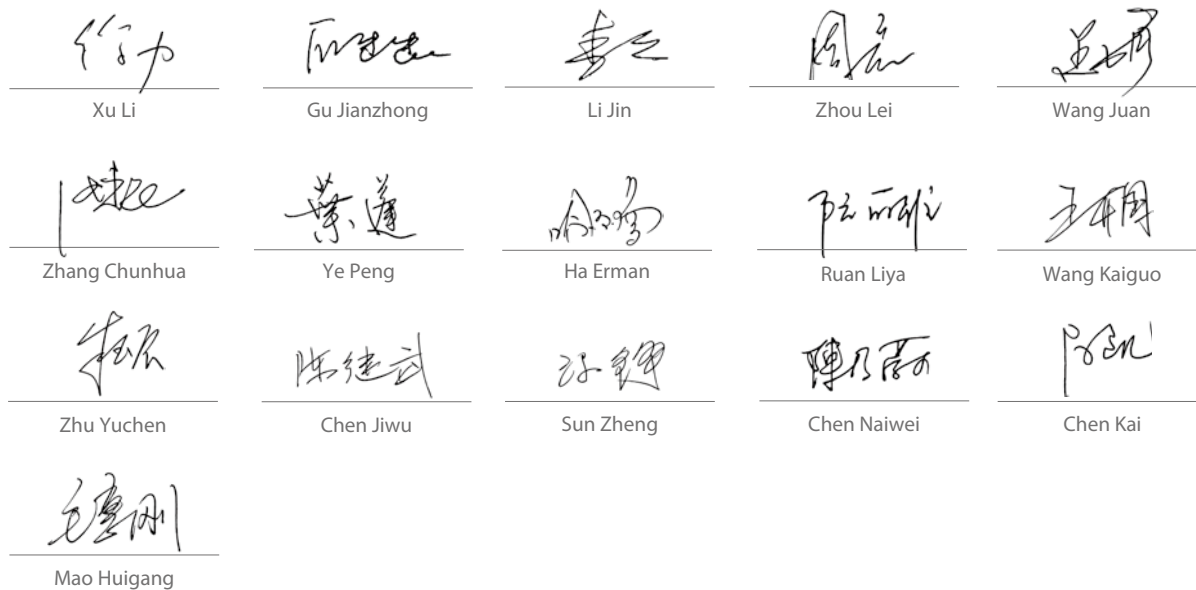 徐力
Xu Li Gu Jianzhong Li Jin Zhou Lei Wang Juan
葉蓬 阮丽雅 王开国
Zhang Chunhua Ye Peng Ha Erman Ruan Liya Wang Kaiguo
朱玉辰 陈继武 孙铮 陳乃蔚 陈凯
Zhu Yuchen Chen Jiwu Sun Zheng Chen Naiwei Chen Kai
毛惠刚
Mao Huigang